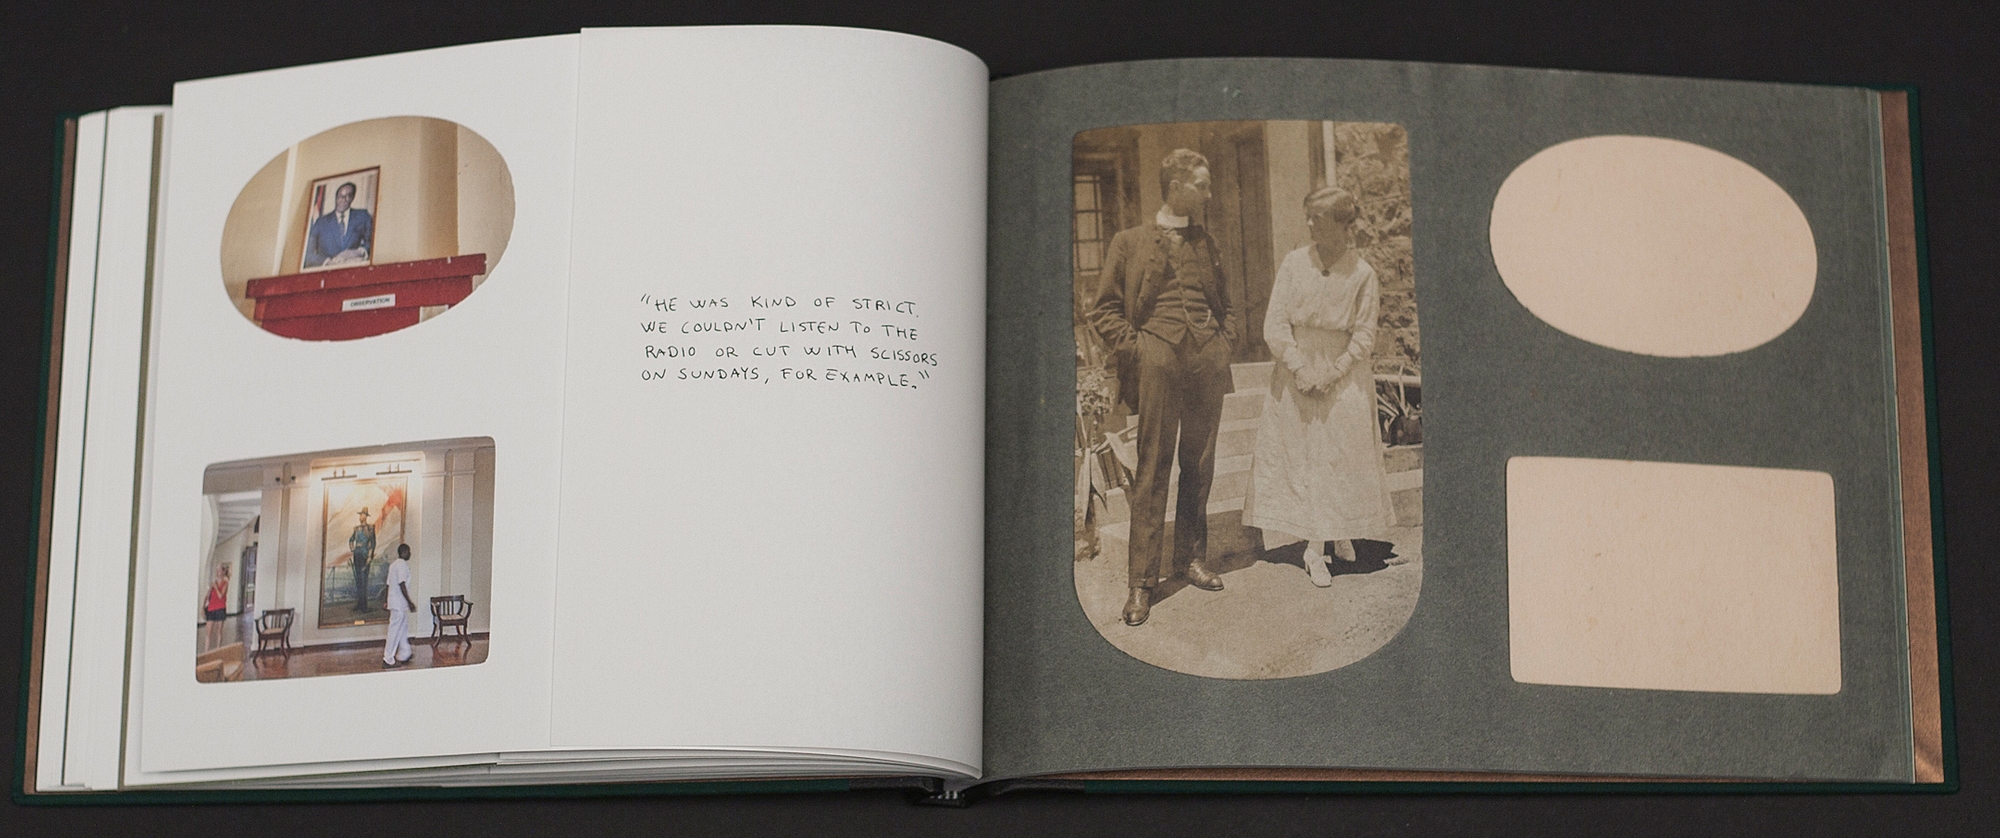 OBSERVATION
"HE WAS KIND OF STRICT.
WE COULDN'T LISTEN TO THE
RADIO OR CUT WITH SCISSORS
ON SUNDAYS, FOR EXAMPLE."